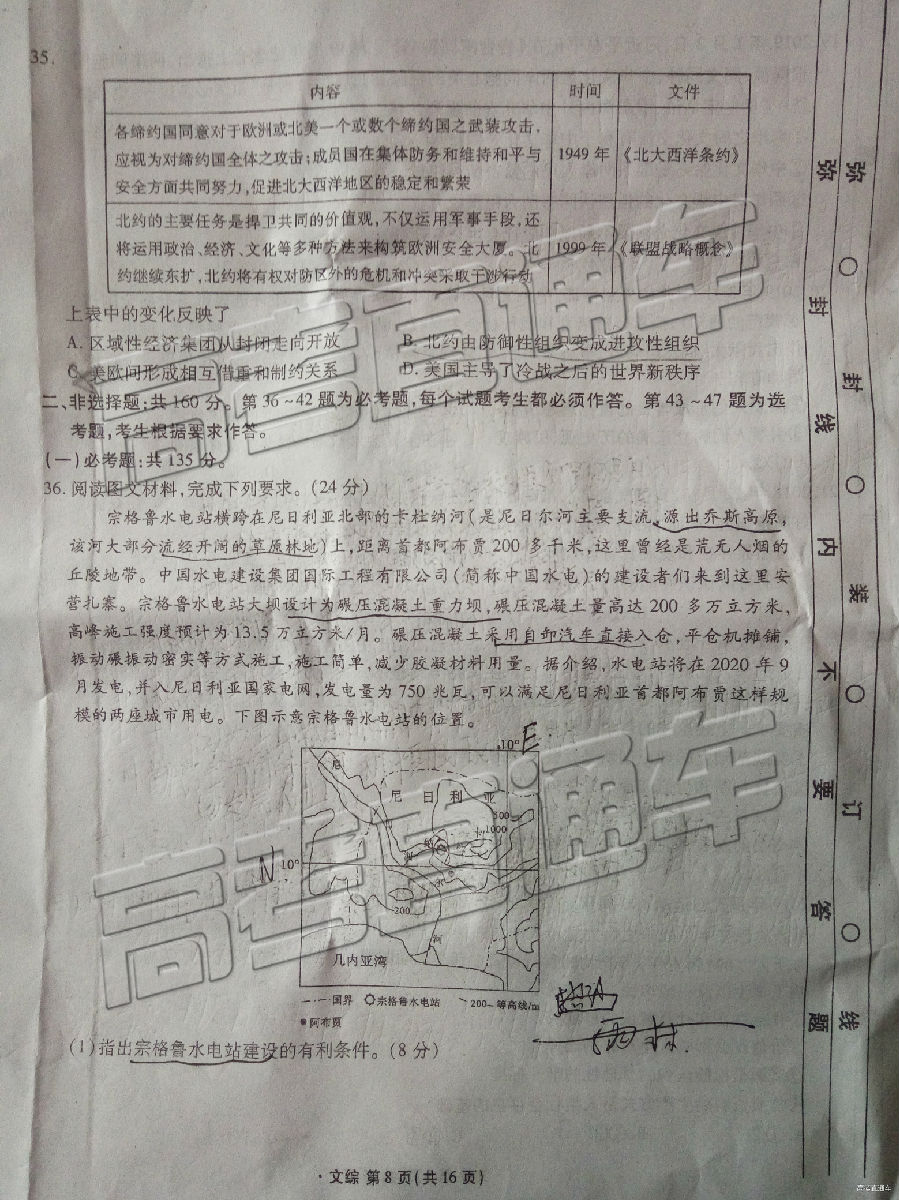 35.
内容 时间 文件
各缔约国同意对于欧洲或北美一个或数个缔约国之武装攻击,
应视为对缔约国全体之攻击;成员国在集体防务和维持和平与
安全方面共同努力,促进北大西洋地区的稳定和繁荣
1949 年 《北大西洋条约》
北约的主要任务是捍卫共同的价值观,不仅运用军事手段,还
将运用政治、经济、文化等多种方法来构筑欧洲安全大厦。北
约继续东扩,北约将有权对防区外的危机和冲突采取干涉行动
1999 年 《联盟战略概念》
上表中的变化反映了
A. 区域性经济集团从封闭走向开放 B. 北约由防御性组织变成进攻性组织
C. 美欧间形成相互借重和制约关系 D. 美国主导了冷战之后的世界新秩序
二、非选择题:共 160 分。第 36~42 题为必考题,每个试题考生都必须作答。第 43~47 题为选
考题,考生根据要求作答。
(一)必考题:共 135 分。
36. 阅读图文材料,完成下列要求。(24 分)
宗格鲁水电站横跨在尼日利亚北部的卡杜纳河(是尼日尔河主要支流,源出乔斯高原,
该河大部分流经开阔的草原林地)上,距离首都阿布贾 200 多千米,这里曾经是荒无人烟的
丘陵地带。中国水电建设集团国际工程有限公司(简称中国水电)的建设者们来到这里安
营扎寨。宗格鲁水电站大坝设计为碾压混凝土重力坝,碾压混凝土量高达 200 多万立方米,
高峰施工强度预计为 13.5 万立方米/月。碾压混凝土采用自卸汽车直接入仓,平仓机摊铺,
振动碾振动密实等方式施工,施工简单,减少胶凝材料用量。据介绍,水电站将在 2020 年 9
月发电,并入尼日利亚国家电网,发电量为 750 兆瓦,可以满足尼日利亚首都阿布贾这样规
模的两座城市用电。下图示意宗格鲁水电站的位置。
10° E
尼
尼日利亚
500
1000
N 10°
200
河
几内亚湾
国界 宗格鲁水电站 200 等高线/m
阿布贾
雨林
(1)指出宗格鲁水电站建设的有利条件。(8 分)
·文综 第 8 页(共 16 页)
弥 封 线 内 不 要 答 题
弥 封 装 订 线
高考直通车
高考直通车
高考直通车